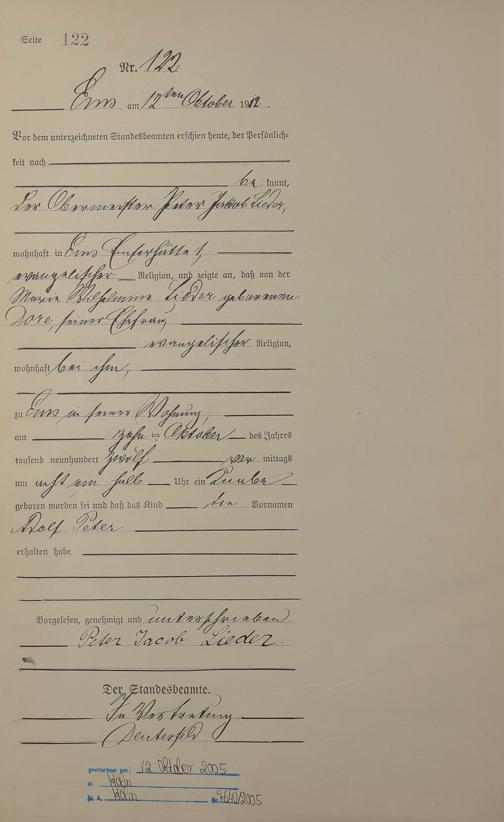 Seite 122
Nr. 122
Ems am 12ten Oktober 1912.
Vor dem unterzeichneten Standesbeamten erschien heute, der Persönlich-
keit nach
be kannt,
der Obermeister Peter Jakob Lieder,
wohnhaft in Ems Emserhütte 1,
evangelischer Religion, und zeigte an, daß von der
Marie Wilhelmine Lieder geborenen
Dore, seiner Ehefrau,
evangelischer Religion,
wohnhaft bei ihm,
zu Ems in seiner Wohnung,
am zehn ten Oktober des Jahres
tausend neunhundert zwölf vor mittags
um acht ein halb Uhr ein Knabe
geboren worden sei und daß das Kind die Vornamen
Adolf Peter
erhalten habe.
Vorgelesen, genehmigt und unterschrieben
Peter Jacob Lieder.
Der Standesbeamte.
In Vertretung
gestorben am: 12 Oktober 2005
in Köln
St. A. Köln Nr. 7690/2005